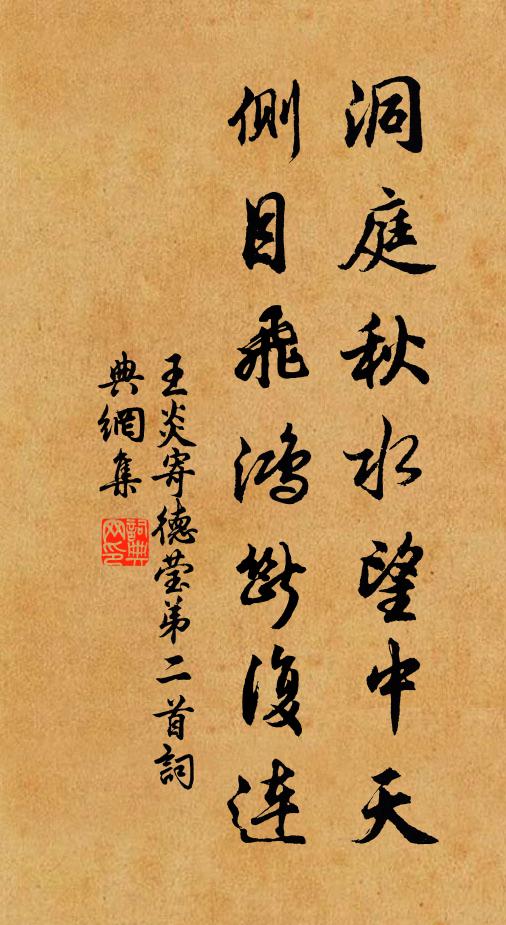 洞庭秋水望中天
側目飛鴻斷復連
王炎寄德瑩第二首詞
典網集
詞典
网印